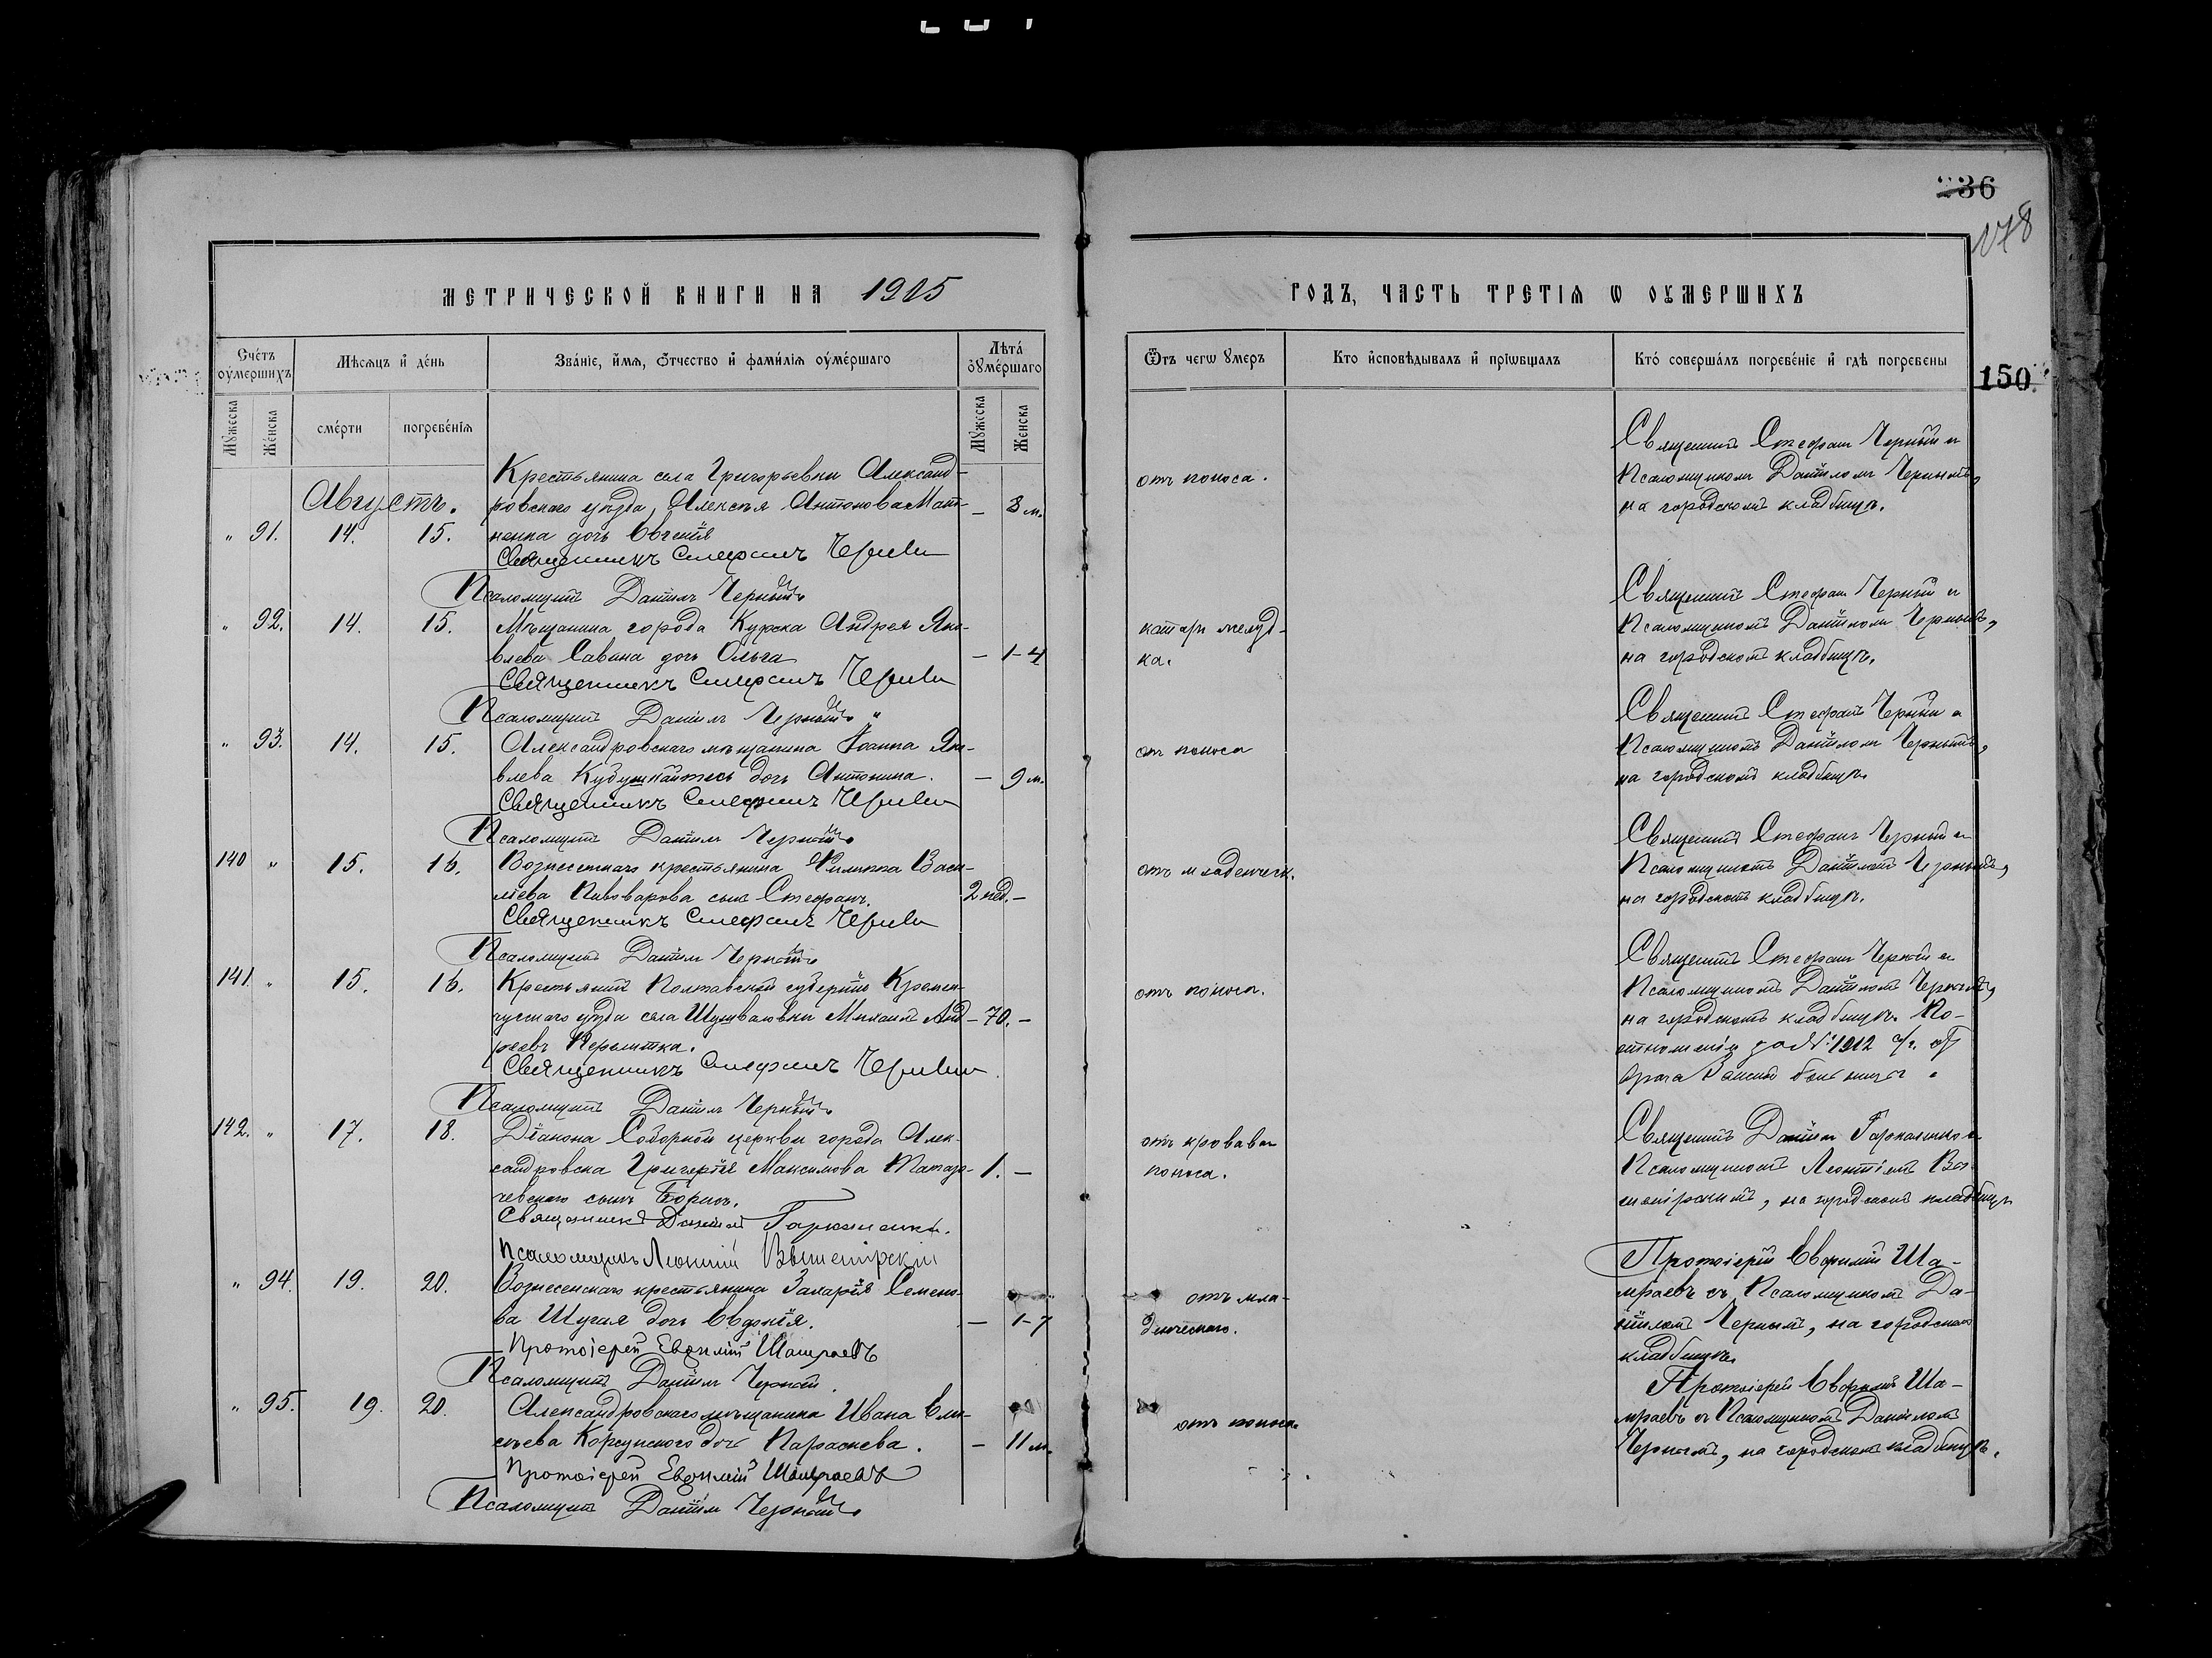 36
178
МЕТРИЧЕСКОЙ КНИГИ НА 1905
ГОДЪ, ЧАСТЬ ТРЕТІѦ Ѡ ОУМЕРШИХЪ
150
Счетъ оумершихъ
Мѣсяцъ и день
Званіе, имя, отчество и фамилія оумершаго
Лѣта оумершаго
Мужеска
Женска
смерти
погребенія
Мужеска
Женска
Ѿ чегѡ умеръ
Кто исповѣдывалъ и пріѡбщалъ
Кто совершалъ погребеніе и гдѣ погребены
Августъ.
" 91. 14. 15.
Крестьянина села Григорьевки Александ-
ровскаго уѣзда, Алексѣя Антонова
ненка дочь Евгенія
— 3 м.
отъ поноса.
Священникъ Стефанъ Черный и
Псаломщикомъ Даніиломъ Чернымъ,
на городскомъ кладбищѣ.
Священникъ Стефанъ Черный
Псаломщикъ Даніилъ Черный
" 92. 14. 15.
Мѣщанина города Курска Андрея Яко-
влева Савина дочь Ольга
— 1-4
катарр желуд-
ка.
Священникъ Стефанъ Черный и
Псаломщикомъ Даніиломъ Чернымъ,
на городскомъ кладбищѣ.
Священникъ Стефанъ Черный
Псаломщикъ Даніилъ Черный
" 93. 14. 15.
Александровскаго мѣщанина Іоанна Яко-
влева дочь Антонина.
— 9 м.
отъ поноса
Священникъ Стефанъ Черный и
Псаломщикомъ Даніиломъ Чернымъ,
на городскомъ кладбищѣ.
Священникъ Стефанъ Черный
Псаломщикъ Даніилъ Черный
140 " 15. 16.
Вознесенскаго крестьянина Филиппа Васи-
ліева Пивоварова сынъ Стефанъ.
2 нед. —
отъ младенческ.
Священникъ Стефанъ Черный и
Псаломщикомъ Даніиломъ Чернымъ,
на городскомъ кладбищѣ.
Священникъ Стефанъ Черный
Псаломщикъ Даніилъ Черный
141. " 15. 16.
Крестьянинъ Полтавской губерніи Кремен-
чугскаго уѣзда села Михаилъ Анд-
реевъ
— 70. —
отъ поноса.
Священникъ Стефанъ Черный и
Псаломщикомъ Даніиломъ Чернымъ,
на городскомъ кладбищѣ. По
отношенію за № 1912 с/г. отъ
врача Земской больницы.
Священникъ Стефанъ Черный
Псаломщикъ Даніилъ Черный
142. " 17. 18.
Діакона Соборной церкви города Алек-
сандровска Григорія Максимова Татар-
чевскаго сынъ Борисъ.
1. —
отъ кроваваго
поноса.
Священникъ Даніилъ Гаркаленко и
Псаломщикомъ Леонтіемъ
на городскомъ кладбищѣ
Священникъ Даніилъ Гаркаленко.
Псаломщикъ Леонтій
" 94. 19. 20.
Вознесенскаго крестьянина Захарія Семено-
ва Шугая дочь Евдокія.
— 1-7
отъ мла-
денческаго.
Протоіерей Евфимій Ша-
мраевъ съ Псаломщикомъ Да-
ніиломъ Чернымъ, на городскомъ
кладбищѣ.
Протоіерей Евфимій Шамраевъ
Псаломщикъ Даніилъ Черный
" 95. 19. 20.
Александровскаго мѣщанина Ивана Ели-
сѣева Корсунскаго дочь Параскева.
— 11 м.
отъ поноса.
Протоіерей Евфимій Ша-
мраевъ съ Псаломщикомъ Даніиломъ
Чернымъ, на городскомъ кладбищѣ.
Протоіерей Евфимій Шамраевъ
Псаломщикъ Даніилъ Черный